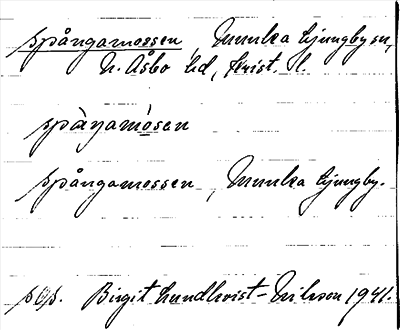 Spångamossen, Munka Ljungby sn,
N. Åsbo hd, Krist. l.
spångamósen
Spångamossen, Munka Ljungby.
Birgit Lundkvist-Nilsson 1941.